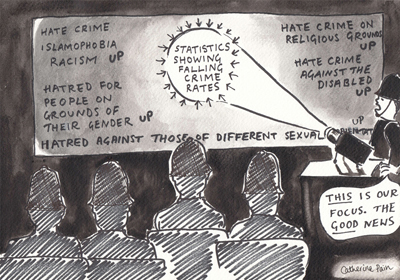 HATE CRIME
ISLAMOPHOBIA
RACISM UP
HATRED FOR
PEOPLE ON
GROUNDS OF
THEIR GENDER UP
STATISTICS
SHOWING
FALLING
CRIME
RATES
HATE CRIME ON
RELIGIOUS GROUNDS
UP
HATE CRIME
AGAINST THE
DISABLED
UP
UP
HATRED AGAINST THOSE OF DIFFERENT SEXUAL
THIS IS OUR
FOCUS. THE
GOOD NEWS
Catherine Pain